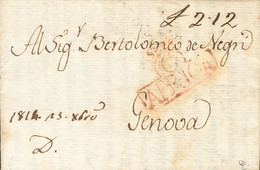 £ 2.12
Al Sig.r Bertolomeo de Negri
1814 23. Xbro
Genova
D.